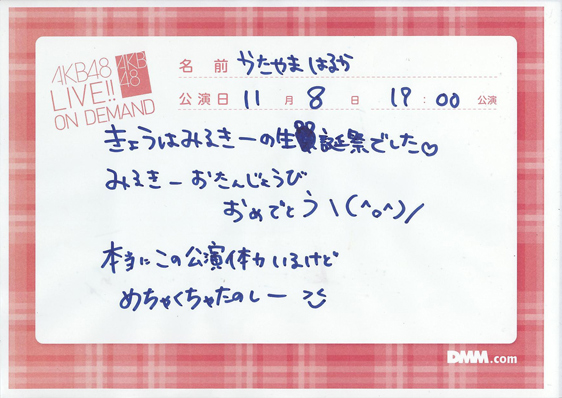 AKB48
LIVE!!
ON DEMAND
AKB
48
名前 かたやまはるか
公演日 11月8日 19:00公演
きょうはみるきーの生誕祭でした♡
みるきーおたんじょうび
おめでとう\(^o^)/
本当にこの公演体力いるけど
めちゃくちゃたのしー
DMM.com